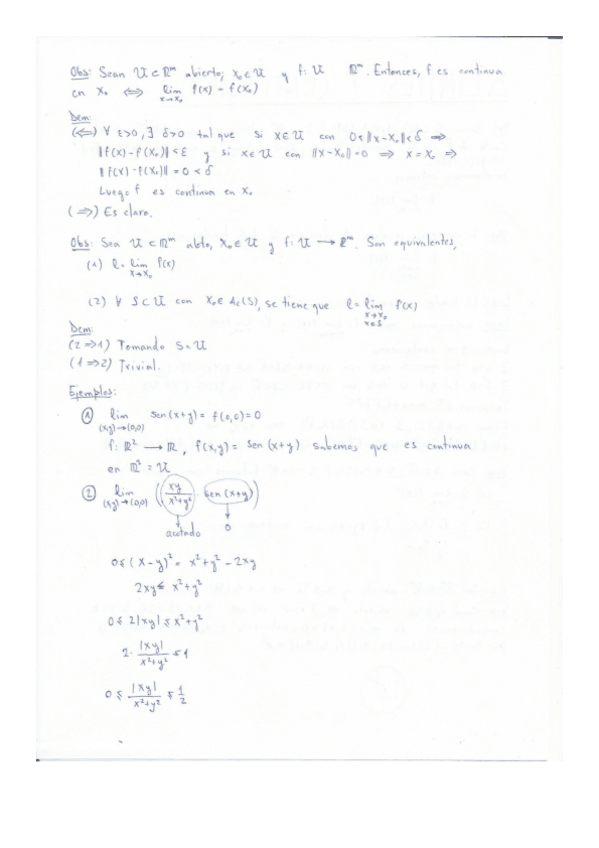 Obs: Sean U ⊂ ℝᵐ abierto, x₀ ∈ U y f: U ℝᵐ. Entonces, f es continua
en x₀ ⇔ lim_{x→x₀} f(x) = f(x₀)
Dem:
(⇐) ∀ ε>0, ∃ δ>0 tal que si x∈U con 0<‖x-x₀‖<δ ⇒
‖f(x)-f(x₀)‖<ε y si x∈U con ‖x-x₀‖=0 ⇒ x=x₀ ⇒
‖f(x)-f(x₀)‖=0<δ
Luego f es continua en x₀.
(⇒) Es claro.
Obs: Sea U ⊂ ℝᵐ abto, x₀∈U y f: U → ℝᵐ. Son equivalentes,
(1) l = lim_{x→x₀} f(x)
(2) ∀ S⊂U con x₀∈Ac(S), se tiene que l = lim_{x→x₀, x∈S} f(x)
Dem:
(2⇒1) Tomando S=U
(1⇒2) Trivial.
Ejemplos:
① lim_{(x,y)→(0,0)} sen(x+y) = f(0,0)=0
f: ℝ² → ℝ, f(x,y) = sen(x+y) sabemos que es continua
en ℝ² = U
② lim_{(x,y)→(0,0)} (xy/(x²+y²) · sen(x+y))
acotado 0
0≤(x-y)² = x²+y²-2xy
2xy ≤ x²+y²
0 ≤ 2|xy| ≤ x²+y²
2·|xy|/(x²+y²) ≤ 1
0 ≤ |xy|/(x²+y²) ≤ 1/2